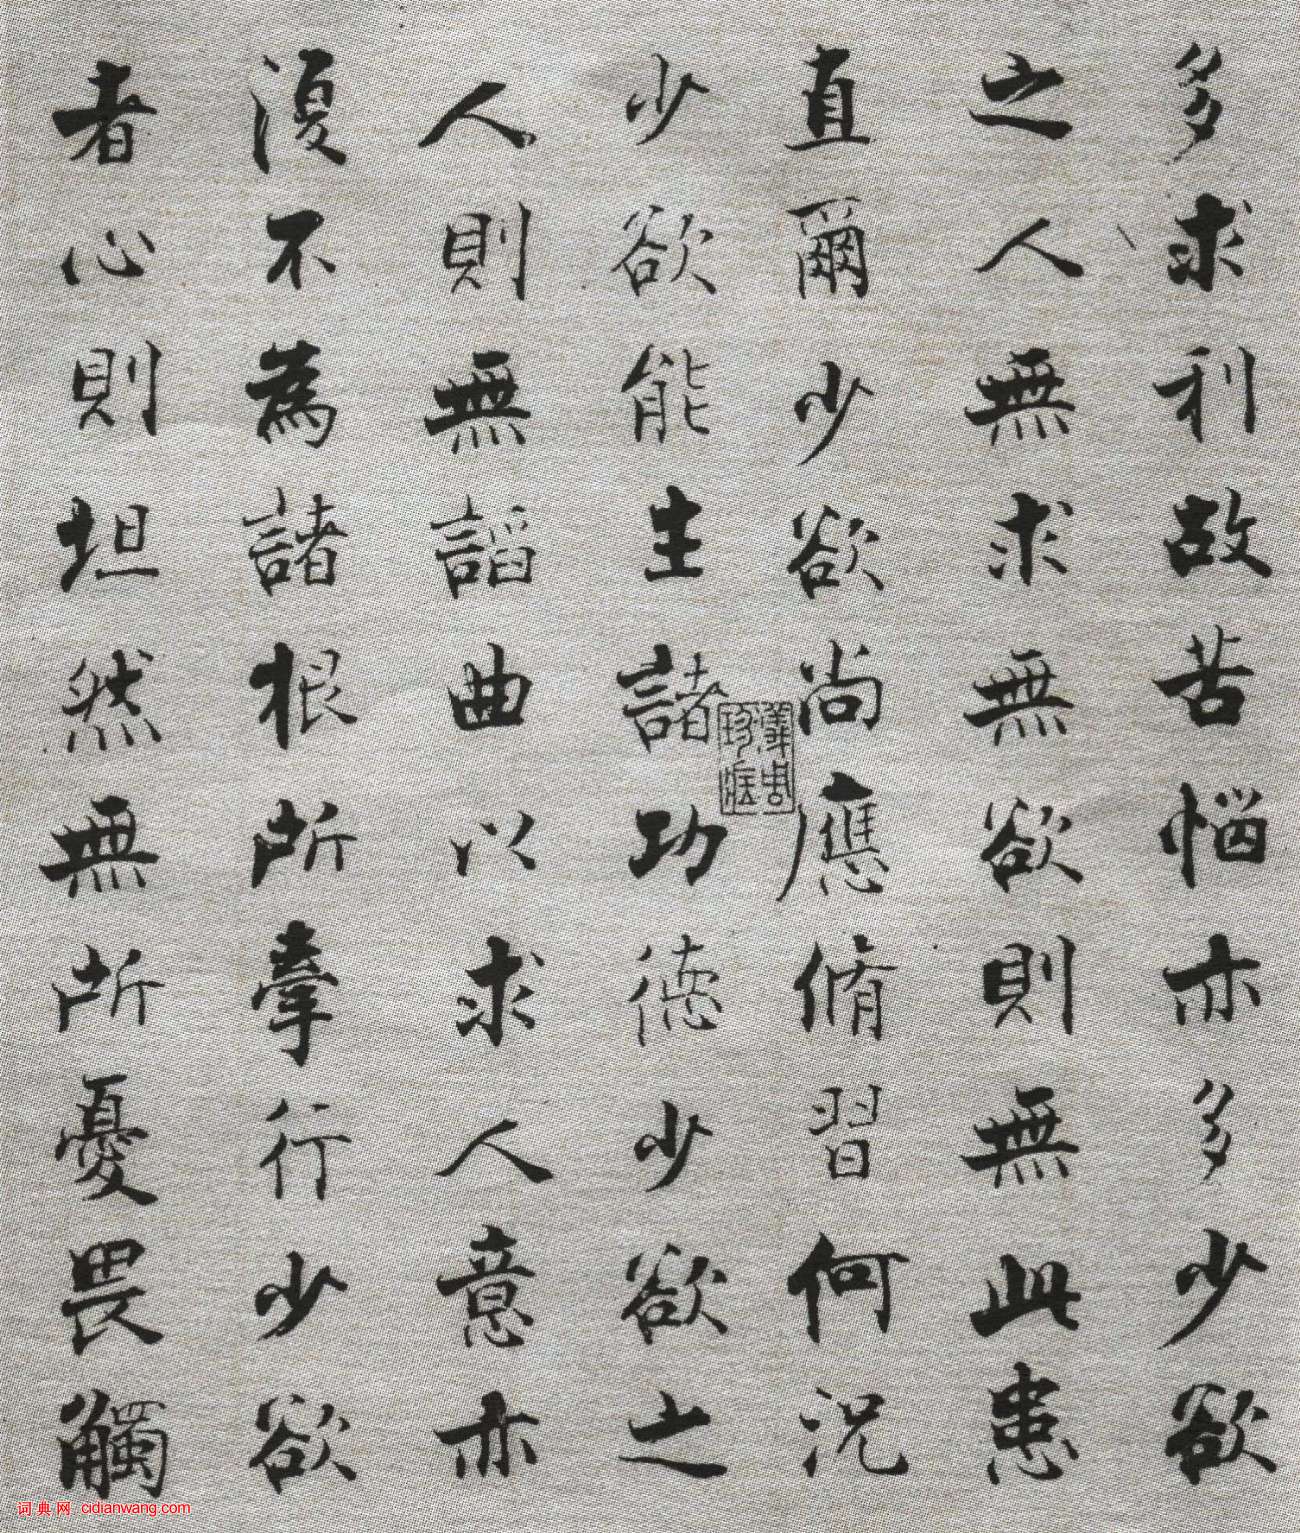 多求利故苦惱亦多少欲
之人無求無欲則無此患
直爾少欲尚應脩習何況
少欲能生諸功德少欲之
人則無諂曲以求人意亦
復不為諸根所牽行少欲
者心則坦然無所憂畏觸
词典网 cidianwang.com